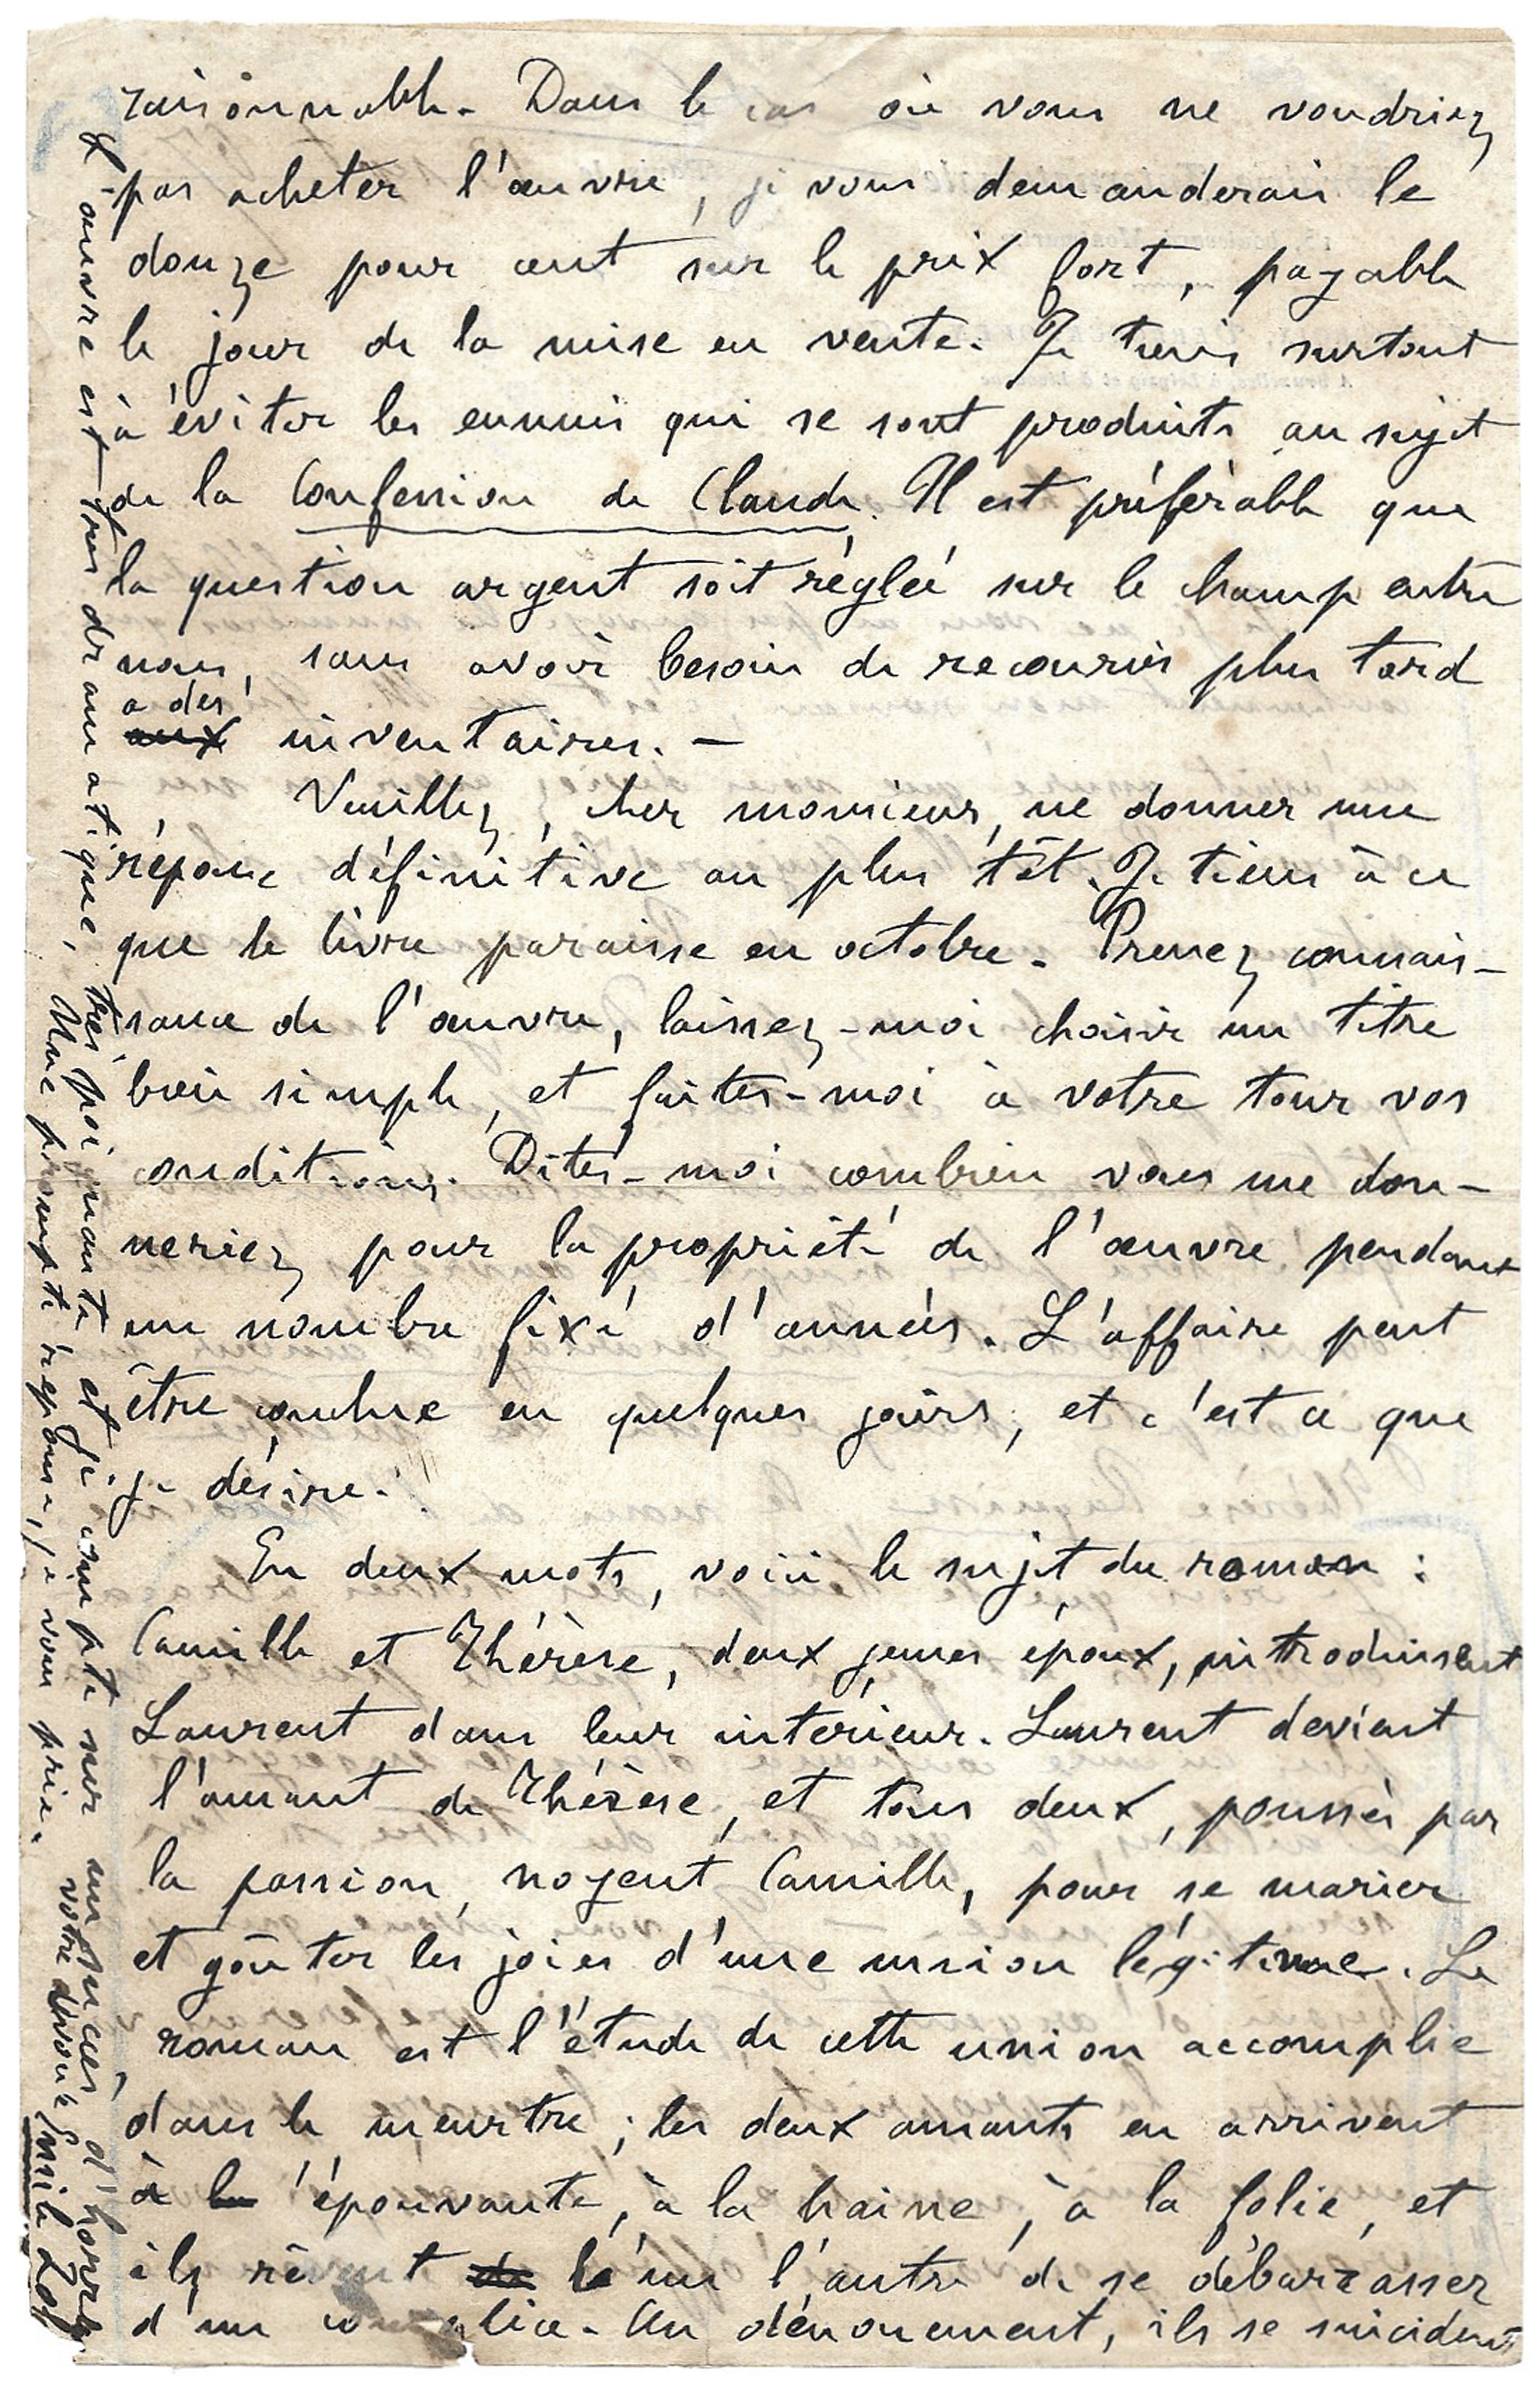 raisonnable. Dans le cas où vous ne voudriez
pas acheter l'œuvre, je vous demanderais le
douze pour cent sur le prix fort, payable
le jour de la mise en vente. Je tiens surtout
à éviter les ennuis qui se sont produits au sujet
de la Confession de Claude. Il est préférable que
la question argent soit réglée sur le champ entre
nous, sans avoir besoin de recourir plus tard
à des
aux inventaires. —
Veuillez, cher monsieur, me donner une
réponse définitive au plus tôt. Je tiens à ce
que le livre paraisse en octobre. Prenez connais-
sance de l'œuvre, laissez-moi choisir un titre
bien simple, et faites-moi à votre tour vos
conditions. Dites-moi combien vous me don-
neriez pour la propriété de l'œuvre pendant
un nombre fixé d'années. L'affaire peut
être conclue en quelques jours, et c'est ce que
je désire.
En deux mots, voici le sujet du roman :
Camille et Thérèse, deux jeunes époux, introduisent
Laurent dans leur intérieur. Laurent devient
l'amant de Thérèse, et tous deux, poussés par
la passion, noyent Camille, pour se marier
et goûter les joies d'une union légitime. Le
roman est l'étude de cette union accomplie
dans le meurtre ; les deux amants en arrivent
à la épouvante, à la haine, à la folie, et
ils rêvent de l'un l'autre de se débarrasser
d'un complice. Au dénouement, ils se suicident
L'œuvre est très dramatique, très poignante et je compte sur un succès d'horreur.
Une prompte réponse, je vous prie.
Votre dévoué
Emile Zola